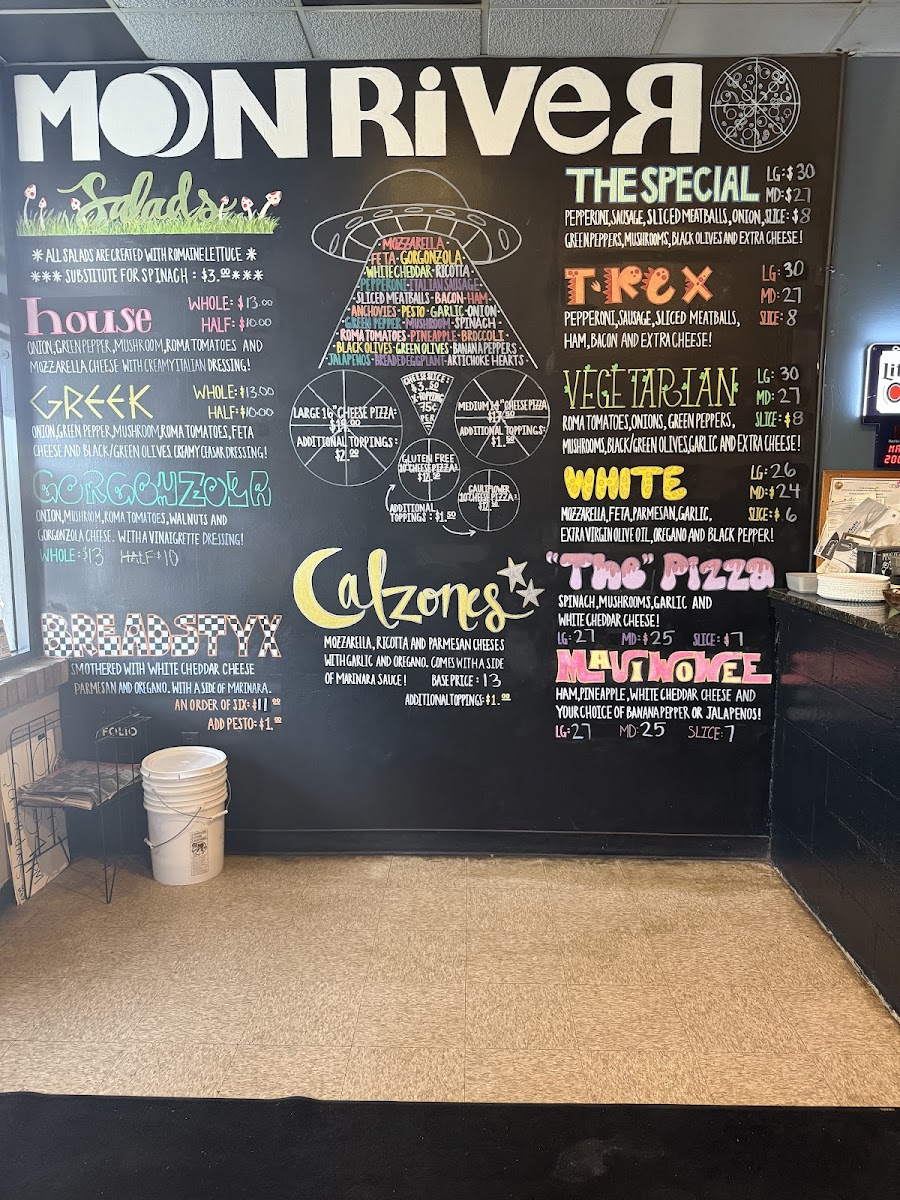 MOON RiVeR
Salads
* ALL SALADS ARE CREATED WITH ROMAINE LETTUCE *
*** SUBSTITUTE FOR SPINACH : $3.00 ***
house
WHOLE: $13.00
HALF: $10.00
ONION, GREEN PEPPER, MUSHROOM, ROMA TOMATOES AND
MOZZARELLA CHEESE WITH CREAMY ITALIAN DRESSING!
GREEK
WHOLE: $13.00
HALF: $10.00
ONION, GREEN PEPPER, MUSHROOM, ROMA TOMATOES, FETA
CHEESE AND BLACK/GREEN OLIVES CREAMY CEASAR DRESSING!
GORGONZOLA
ONION, MUSHROOM, ROMA TOMATOES, WALNUTS AND
GORGONZOLA CHEESE. WITH A VINAIGRETTE DRESSING!
WHOLE: $13 HALF: $10
BREADSTYX
SMOTHERED WITH WHITE CHEDDAR CHEESE
PARMESAN AND OREGANO. WITH A SIDE OF MARINARA.
AN ORDER OF SIX: $11.00
ADD PESTO: $1.00
FOLIO
·MOZZARELLA·
FETA·GORGONZOLA
WHITE CHEDDAR·RICOTTA·
·PEPPERONI·ITALIAN SAUSAGE·
·SLICED MEATBALLS·BACON·HAM·
ANCHOVIES·PESTO·GARLIC·ONION·
·GREEN PEPPER·MUSHROOM·SPINACH·
ROMA TOMATOES·PINEAPPLE·BROCCOLI·
BLACK OLIVES·GREEN OLIVES·BANANA PEPPERS·
JALAPENOS·BREADED EGGPLANT·ARTICHOKE HEARTS·
CHEESE SLICE:
$3.50
X-TOPPING
75¢
PER
LARGE 16" CHEESE PIZZA:
ADDITIONAL TOPPINGS:
$2.00
MEDIUM 14" CHEESE PIZZA
ADDITIONAL TOPPINGS:
$1.50
GLUTEN FREE
10" CHEESE PIZZA:
CAULIFLOWER
10" CHEESE PIZZA:
ADDITIONAL
TOPPINGS: $1.50
Calzones
MOZZARELLA, RICOTTA AND PARMESAN CHEESES
WITH GARLIC AND OREGANO. COMES WITH A SIDE
OF MARINARA SAUCE! BASE PRICE: 13
ADDITIONAL TOPPINGS: $1.00
THE SPECIAL
LG: $30
MD: $27
PEPPERONI, SAUSAGE, SLICED MEATBALLS, ONION, SLICE: $8
GREEN PEPPERS, MUSHROOMS, BLACK OLIVES AND EXTRA CHEESE!
T-REX
LG: 30
MD: 27
SLICE: 8
PEPPERONI, SAUSAGE, SLICED MEATBALLS,
HAM, BACON AND EXTRA CHEESE!
VEGETARIAN
LG: 30
MD: 27
SLICE: $8
ROMA TOMATOES, ONIONS, GREEN PEPPERS,
MUSHROOMS, BLACK/GREEN OLIVES, GARLIC AND EXTRA CHEESE!
WHITE
LG: 26
MD: $24
SLICE: $6
MOZZARELLA, FETA, PARMESAN, GARLIC,
EXTRA VIRGIN OLIVE OIL, OREGANO AND BLACK PEPPER!
"The" Pizza
SPINACH, MUSHROOMS, GARLIC AND
WHITE CHEDDAR CHEESE!
LG: 27 MD: $25 SLICE: $7
MAUIWOWEE
HAM, PINEAPPLE, WHITE CHEDDAR CHEESE AND
YOUR CHOICE OF BANANA PEPPER OR JALAPENOS!
LG: 27 MD: 25 SLICE: 7
Lit